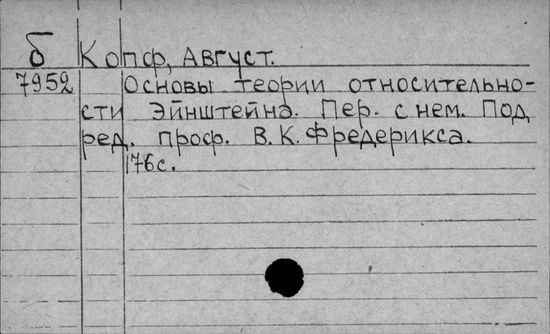 б Копф, Август.
7952 Основы теории относительно-
сти Эйнштейна. Пер. с нем. Под
ред. проф. В.К. Фредерикса.
176с.